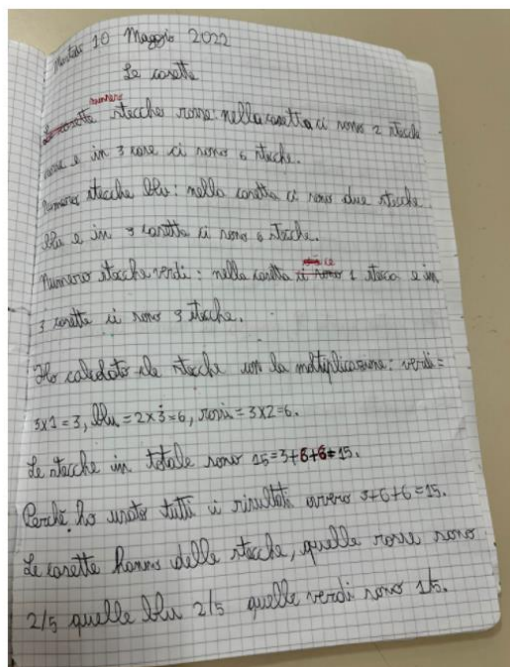 Martedì 10 Maggio 2022
Le casette
numero
La casetta stecche rosse: nella casetta ci sono 2 stecche
rosse e in 3 case ci sono 6 stecche.
Numero stecche blu: nella casetta ci sono due stecche
blu e in 3 casette ci sono 6 stecche.
Numero stecche verdi: nella casetta ci sono 1 stecca e in
3 casette ci sono 3 stecche.
Ho calcolato le stecche con la moltiplicazione: verdi=
3x1=3, blu=2x3=6, rossi=3x2=6.
Le stecche in totale sono 15=3+6+6=15.
Perché ho usato tutti i risultati ovvero 3+6+6=15.
Le casette hanno delle stecche, quelle rosse sono
2/5 quelle blu 2/5 quelle verdi sono 1/5.